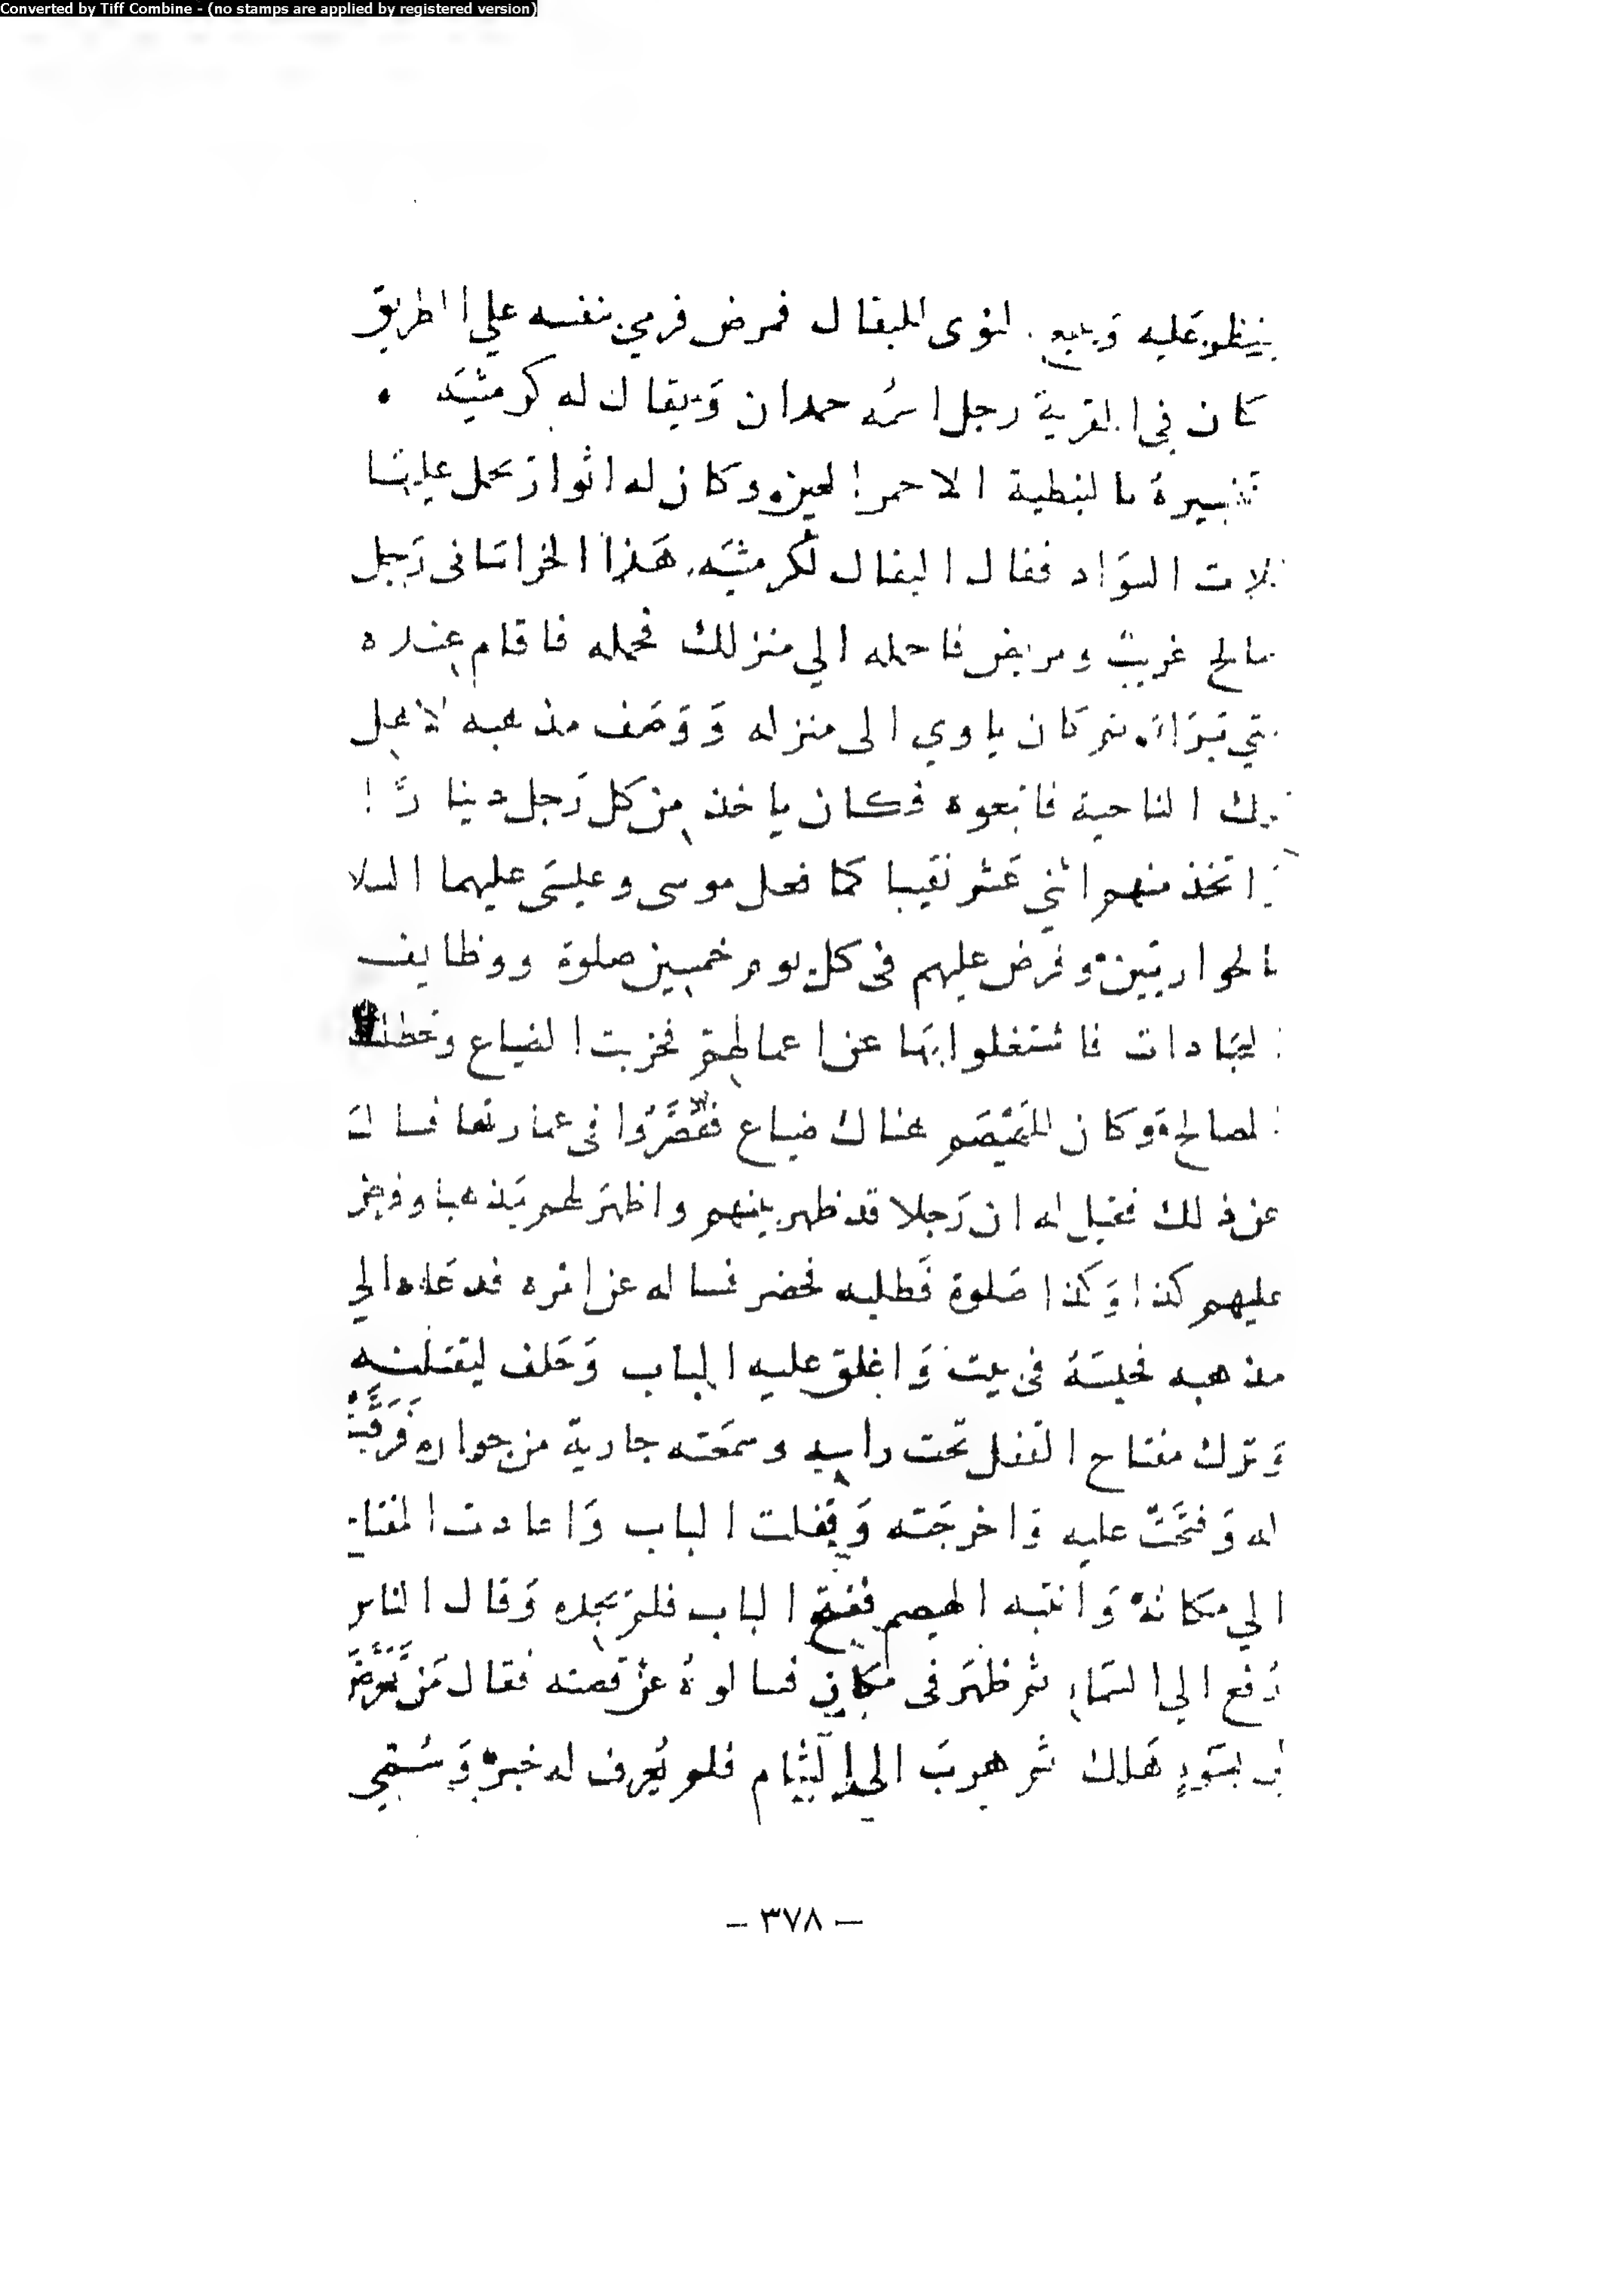 Converted by Tiff Combine - (no stamps are applied by registered version)
عليه ويبيع النوى للبقال فمرض فرمي نفسه علي الطريق
كان في القرية رجل اسمُه حمدان وَيقال له كرميتَه
تفسيرهُ بالنبطية الاحمر العين وكان له اثوار يحمل عليها
السوَاد فقال البقال لكرميتَه هَذا الخراسَانى رَجل
غريبٌ ومريض فاحمله الي منزلك فحمله فاقام عنده
ثم كان ياوي الى منزله وَوَصَف مذهبه لاهل
الناحية فاتبعوه فكان ياخذ من كل رَجل دينارًا
اتخذ منهم اثني عَشر نقيبا كما فعل موسى وعيسَى عليهما
وفرَض عليهم فى كل يوم خمسين صلوة ووظايف
فاشتغلوا بهَا عن اعمالهم فخربت الضياع
وَكان للهَيْصَم هناك ضياع فقصَّرُوا فى عمارتها فسال
عن ذلك فقيل له ان رَجلا قد ظهر بينهم واظهَر لهم مَذهبا وفرض
عليهم كذا وَكذا صَلوة فَطلبه فحضر فساله عن امره فدعَاه الي
مذهبه فحبسَهُ فى بيت وَاغلق عليه الباب وَحَلف ليقتلنه
وَترك مفتاح القفل تحت راسه وسمعَته جارية من جواره فَرَقَّتْ
له وَفتحَتْ عليه وَاخرجَته وَقفلت الباب وَاعادت
الي مكانه وَانتبه الهيصم ففتح الباب فلم يجده وَقال الناس
رُفع الي السَماء ثم ظهَر فى مكان فسالوهُ عن قصته فقال مَن تَعَرضَ
لي بسَوءٍ هَلك ثم هربَ الي الشام فلم يُعرف له خبرٌ وَسُمي
– ٣٧٨ –